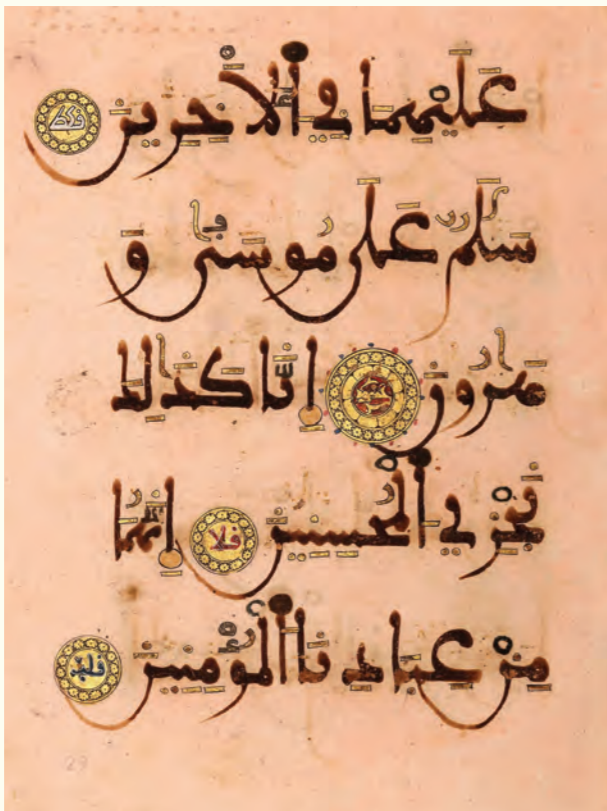 عَلَيْهِمَا فِي ٱلْأَخِرِينَ
سَلَٰمٌ عَلَىٰ مُوسَىٰ وَ
هَٰرُونَ إِنَّا كَذَٰلِكَ
نَجْزِي ٱلْمُحْسِنِينَ إِنَّهُمَا
مِنْ عِبَادِنَا ٱلْمُؤْمِنِينَ
29